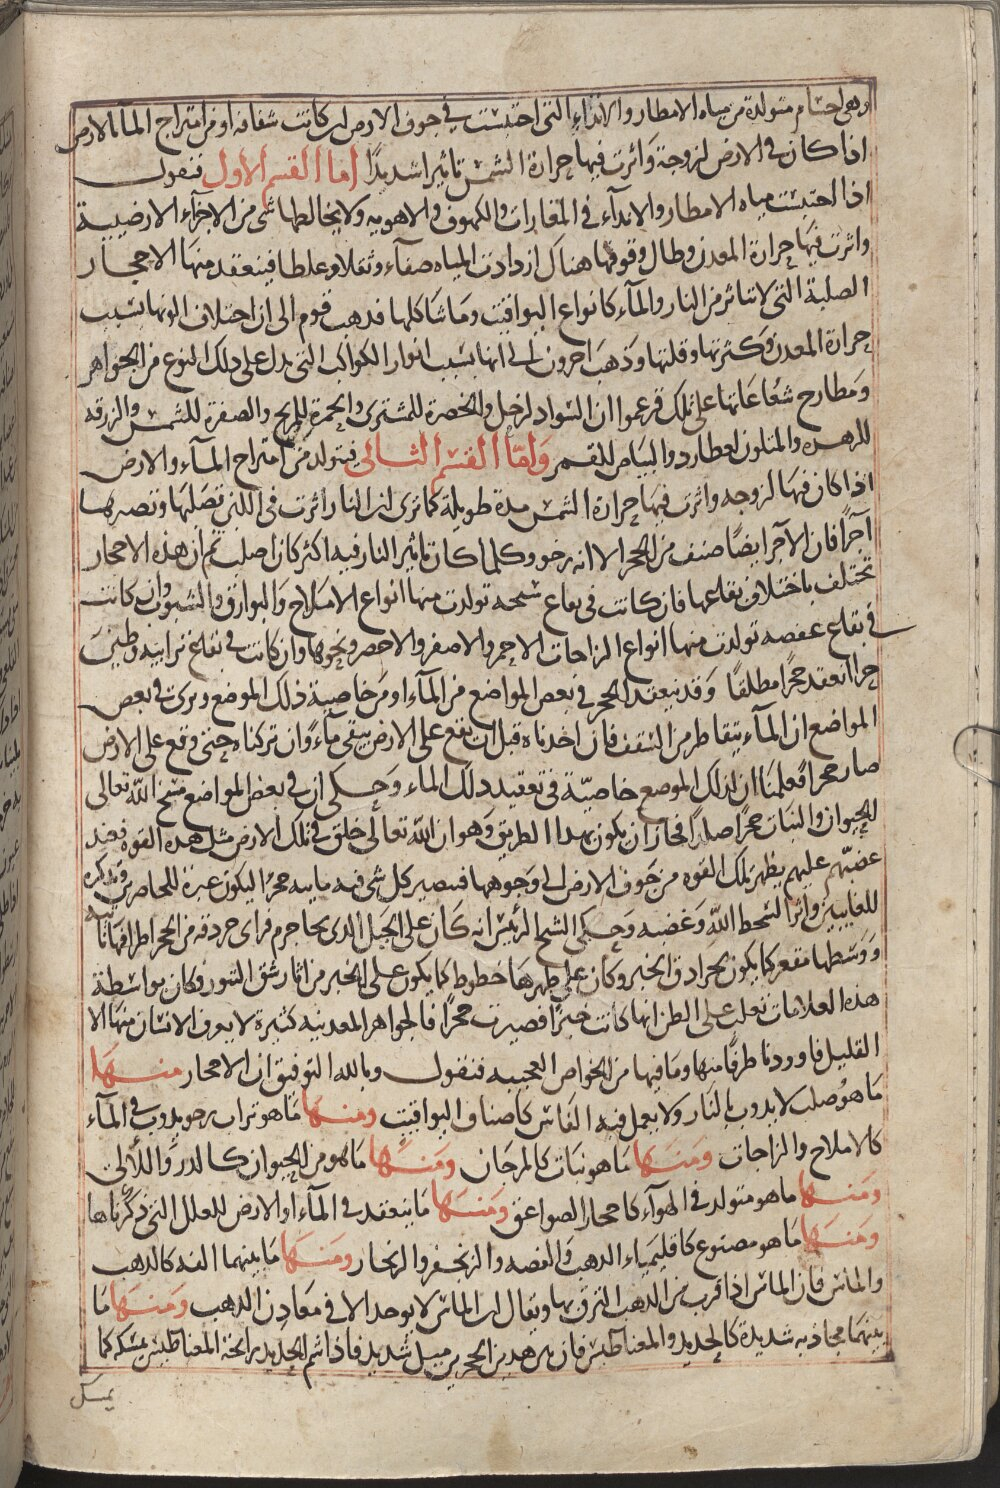 وهى اجسام متولدة من مياه الامطار والانداء التى احتبست فى جوف الارض ان كانت شفافه او من امتزاج الماء بالارض
اذا كان فى الارض لزوجة واثرت فيها حرارة الشمس تاثيرا شديدًا اما القسم الاول فنقول
اذا احتبست مياه الامطار والانداء فى المغارات والكهوف والاهويه ولا يخالطها شى من الاجزآء الارضيية
واثرت فيها حرارة المعدن وطال وقوفها هناك ازدادت المياه صفآء وثقلا وغلظا فينعقد منها الاحجار
الصلبة التى لا تتاثر من النار والمآء كانواع اليواقيت وما شاكلها فذهب قوم الى ان اختلاف الونها بسبب
حرارة المعدن وكثرتها وقلتها وذهب اخرون الى انها بسبب انوار الكواكب التى يدل على ذلك النوع من الجواهر
ومطارح شعاعاتها على تلك فزعموا ان السواد لزحل والخضرة للمشترى والحمرة للمريخ والصفرة للشمس والزرقه
للزهره والمتلون لعطارد والبياض للقمر واما القسم الثانى فيتولد من امتزاج المآء والارض
اذا كان فيها لزوجه واثرت فيها حرارة الشمس مدة طويلة كما ترى ان النار اثرت فى اللبن تصلبها وتصيرها
آجرًا فان الآجر ايضًا صنف من الحجر الا انه رخو وكلما كان تاثير النار فيه اكثر كان اصلب ثم ان هذه الاحجار
تختلف باختلاف بقاعها فان كانت فى بقاع سبخه تولدت منها انواع الاملاح والبوارق والشبوب وان كانت
فى بقاع عفصه تولدت منها انواع الزاجات الاحمر والاصفر والاخضر ونحوها وان كانت فى بقاع ترابيه وطين
حر انعقد حجرًا مطلقًا وقد ينعقد الحجر فى بعض المواضع من المآء او من خاصية ذلك الموضع ويرى فى بعض
المواضع ان المآء يتقاطر من السقف فان اخدناه قبل ان يقع على الارض يبقى مآءً وان تركناه حتى وقع على الارض
صار حجرا فعلمنا ان لذلك الموضع خاصيّة فى تعقيد ذلك الماء وحكى ان فى بعض المواضع مسخ الله تعالى
الحيوان والنبات حجرًا صلدًا فجاز ان يكون بهدا الطريق وهو ان الله تعالى خلق فى تلك الارض مثل هده القوه فعند
غضبهم عليهم يظهر تلك القوه من جوف الارض الى وجوهها فيصير كل شى فيه ما يبه حجرًا ليكون عبرة للحاضرين وتذكره
للغايبين واثر السخط الله وغضبه وحكى الشيخ الرئيس انه كان على الجبل الذى بجاجرم فراى جردقه من الحجر اطرافها ناتيه
ووسطها مقعر كما يكون بجرادق الخبز وكان على ظهرها خطوط كما يكون على الخبز من اثار شق التنور وكان بواسطة
هذه العلامات تغلب على الظن انها كانت خبزًا فصيرت حجرًا فالجواهر المعدنيه كثيرة لا يعرف الانسان منها الا
القليل فاوردنا طرفًا منها وما فيها من الخواص العجيبه فنقول وبالله التوفيق ان الاحجار منها
ما هو صلب لا يدوب بالنار ولا يعمل فيه الفاس كاصناف اليواقيت ومنها ما هو تراب رخو يدوب فى المآء
كالاملاح والزاجات ومنها ما هو نبات كالمرجان ومنها ما هو من الحيوان كالدر واللآلى
ومنها ما هو متولد فى الهوآء كاحجار الصواعق ومنها ما ينعقد فى المآء او الارض للعلل التى ذكرناها
ومنها ما هو مصنوع كاقليمياء الدهب والفصه والزنجفر والزنجار ومنها ما بينهما الفه كالدهب
والماس فان الماس اذا قرب من الدهب التزق بها ويقال ان الماس لا يوجد الا فى معادن الدهب ومنها ما
بينهما مجاذبه شديدة كالحديد والمغناطيس فان بين هدين الحجرين ميل شديد فاذا شم الحديد رايحة المغناطيس يمسكه كما
يمسك